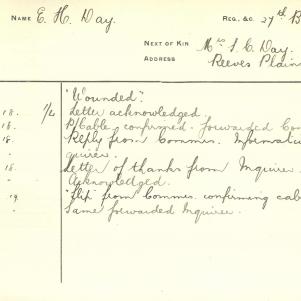 NAME E. H. Day. REG., &C. 27th B
NEXT OF KIN Mrs S. C. Day.
ADDRESS Reeves Plain
"Wounded".
18. 7/4 Letter acknowledged.
18. P/Cable confirmed. forwarded Com
18. Reply from Commrs. Informati
quirer.
18. Letter of thanks from Inquirer.
" Acknowledged.
19. "Slip" from Commrs. confirming cab
" Same forwarded Inquirer.